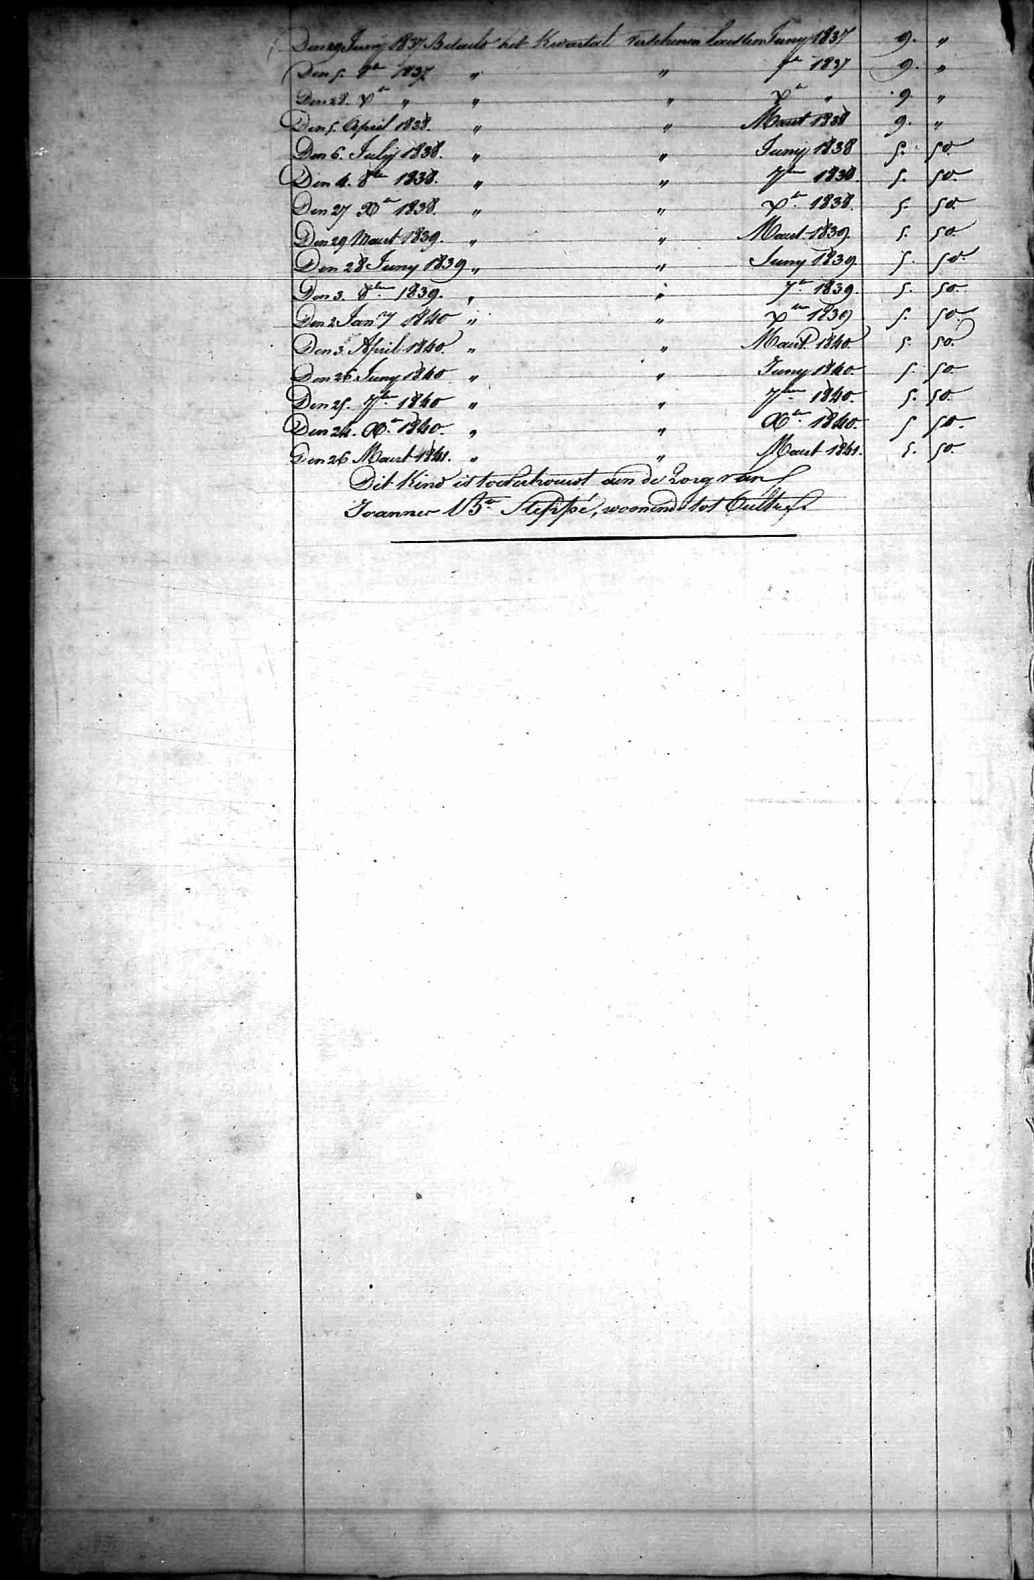 Den 29 Juny 1837 Betaelt het Kwartal verschenen Juny 1837 9. "
Den 5. 8er 1837 " " 7er 1837 9. "
Den 28. Xer " " " Xer " 9. "
Den 5. April 1838. " " Maert 1838 9. "
Den 6. July 1838. " " Juny 1838 5. 50.
Den 4. 8er 1838. " " 7er 1838. 5. 50.
Den 27 Xer 1838. " " Xer 1838. 5. 50.
Den 29 Maert 1839. " " Maert 1839 5. 50.
Den 28 Juny 1839 " " Juny 1839 5. 50.
Den 3. 8er 1839. " " 7er 1839. 5. 50.
Den 2 Jany 1840 " " Xer 1839 5. 50.
Den 3. April 1840. " " Maert 1840. 5. 50.
Den 26 Juny 1840 " " Juny 1840 5. 50
Den 25. 7er 1840 " " 7er 1840 5. 50.
Den 24. Xer 1840. " " Xer 1840. 5 50.
Den 26 Maert 1841. " " Maert 1841. 5. 50.
Dit Kind is toevertrouwt aen de Zorg van
Joannes Bte Steppé, woonend tot